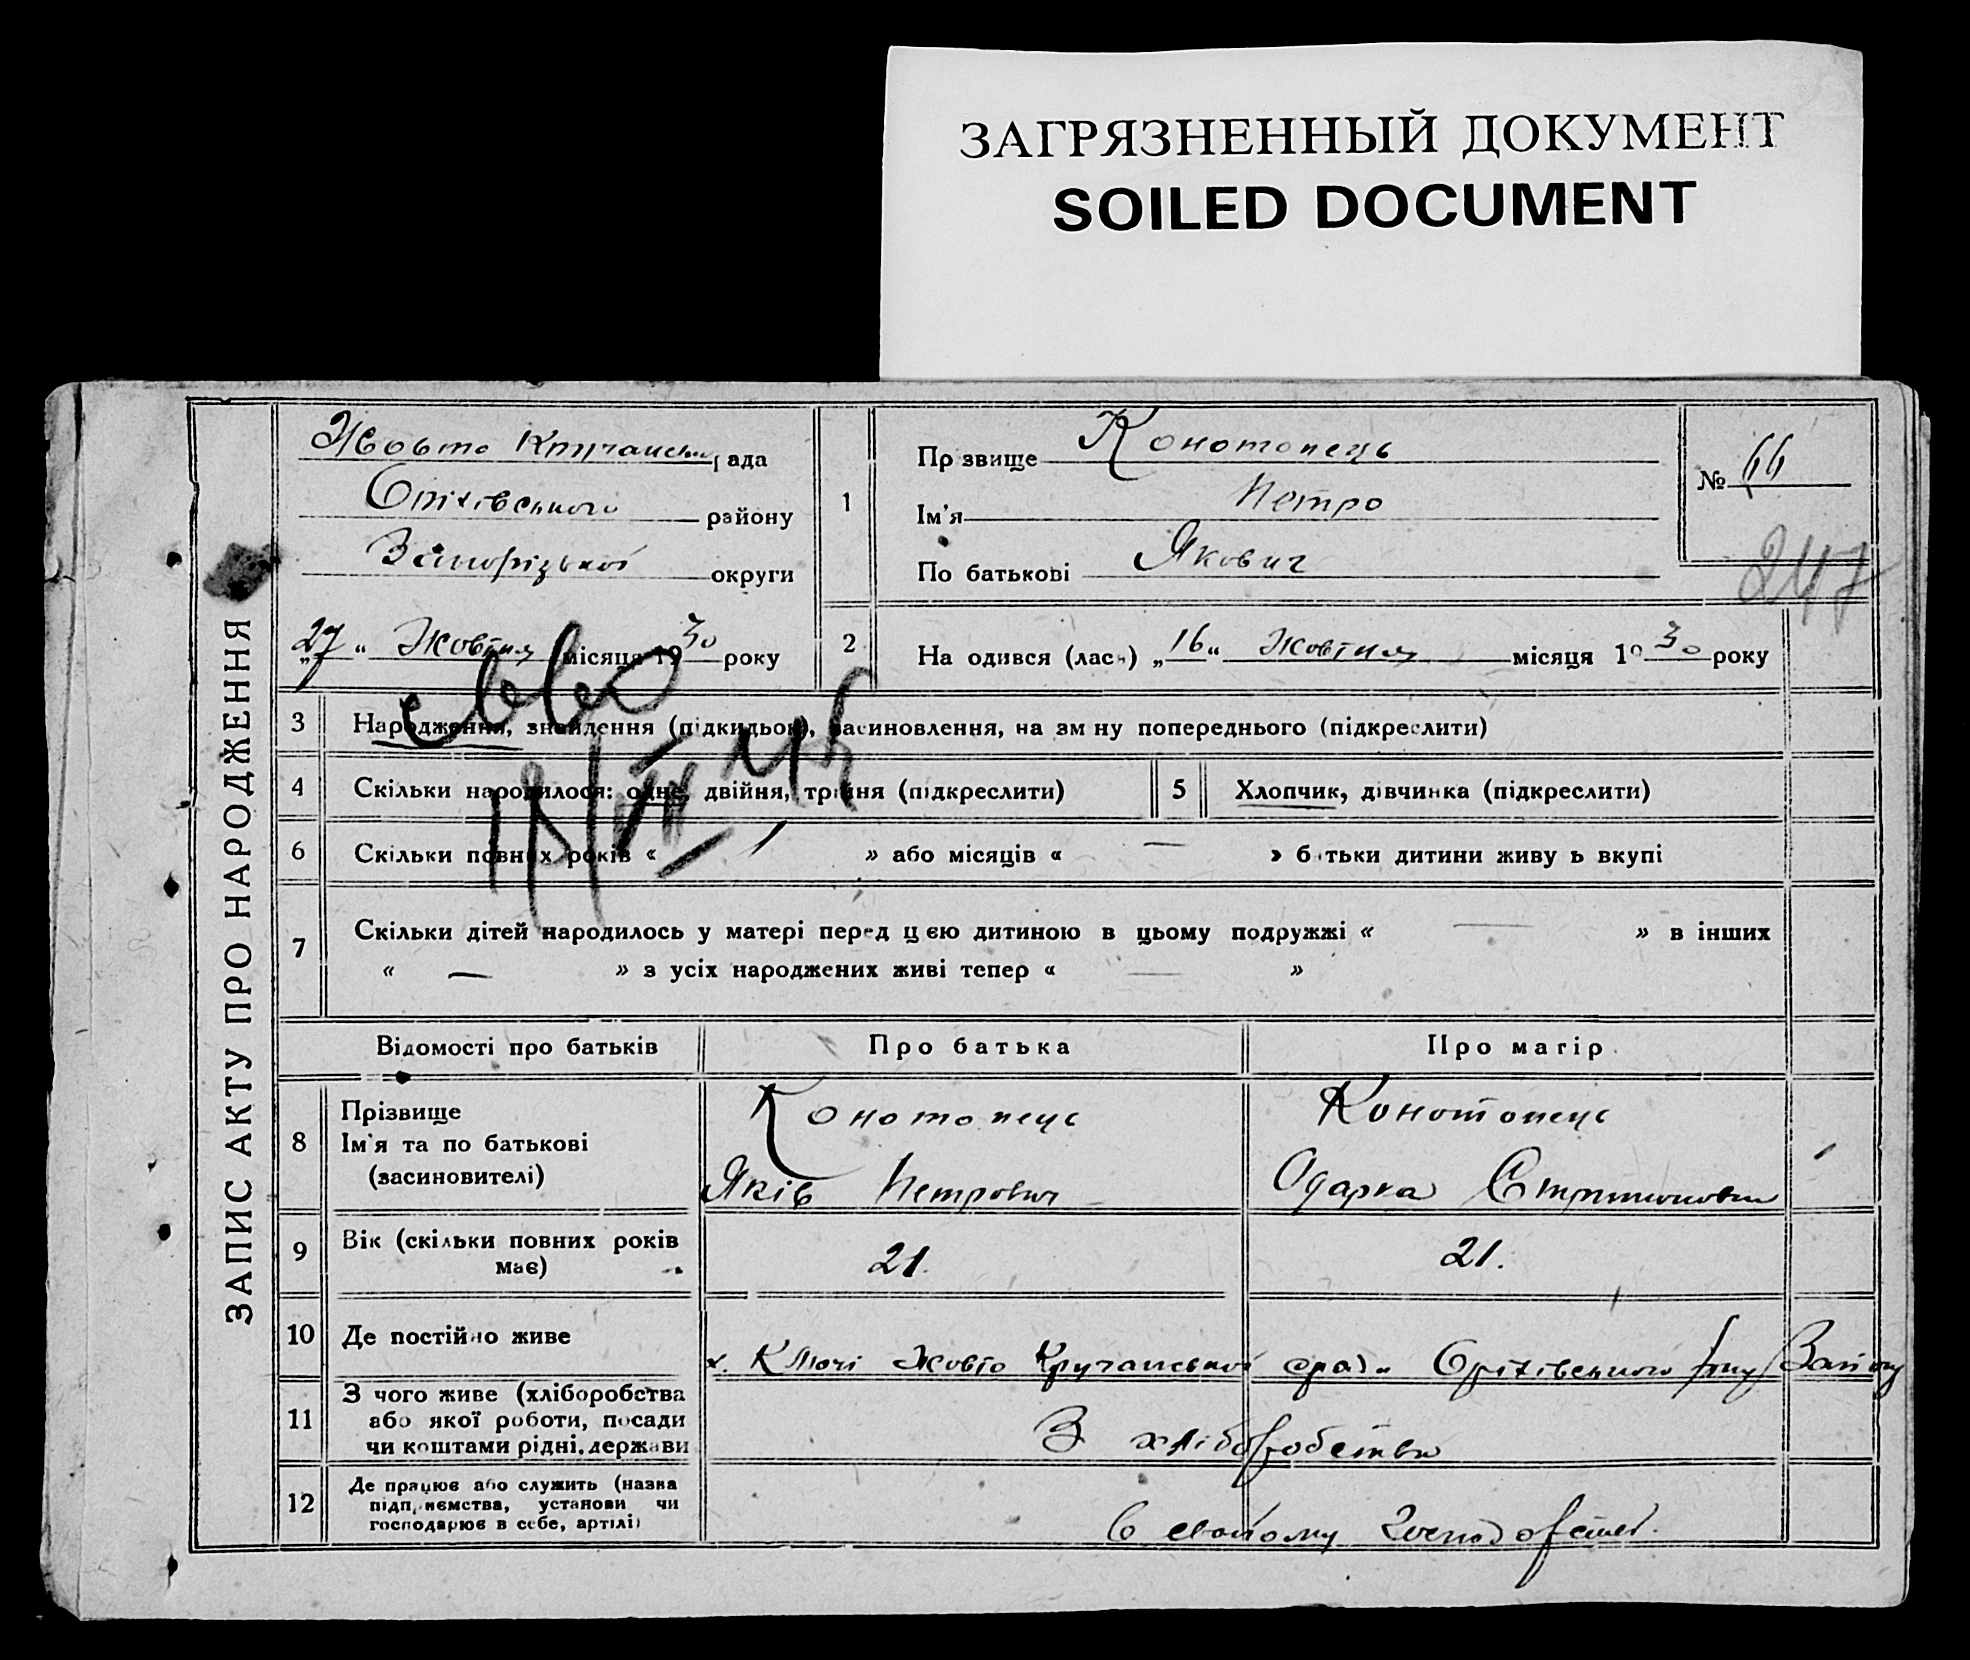 ЗАГРЯЗНЕННЫЙ ДОКУМЕНТ
SOILED DOCUMENT
ЗАПИС АКТУ ПРО НАРОДЖЕННЯ
Жовто Кручанська рада
Оріхівського району
Запорізької округи
„27“ Жовтня місяця 1930 року
1
Прізвище Конотопець
Ім'я Петро
По батькові Якович
№ 66
247
2 На одився (лась) „16“ Жовтня місяця 1930 року
3 Народження, знайдення (підкидьок), засиновлення, на зм ну попереднього (підкреслити)
4 Скільки народилося: одне, двійня, трійня (підкреслити)
5 Хлопчик, дівчинка (підкреслити)
6 Скільки повних років « 1 » або місяців « — » б тьки дитини живу ь вкупі
7 Скільки дітей народилось у матері перед ц ею дитиною в цьому подружжі « — » в інших
« — » з усіх народжених живі тепер « — »
Відомості про батьків Про батька Про матір
8 Прізвище Конотопець Конотопець
Ім'я та по батькові
(засиновителі) Яків Петрович Одарка
9 Вік (скільки повних років
має) 21. 21.
10 Де постійно живе х. Ключі Жовто Кручанської с/рад. Оріхівського р-ну
11 З чого живе (хліборобства
або якої роботи, посади З хліборобства
чи коштами рідні, держави
12 Де працює або служить (назва
підприємства, установи чи
господарює в себе, артілі) В своїому господарстві.